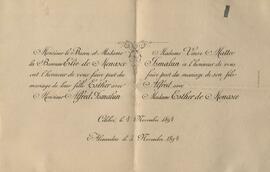 Monsieur le Baron et Madame
la Baronne Elie de Menasce
ont l'honneur de vous faire part du
mariage de leur fille Esther avec
Monsieur Alfred Ismalun
Madame Veuve
Ismalun a l'honneur de vous
faire part du mariage de son fils
Alfred avec
Madame Esther de Menasce
Célébré, le Novembre
Alexandrie le Novembre